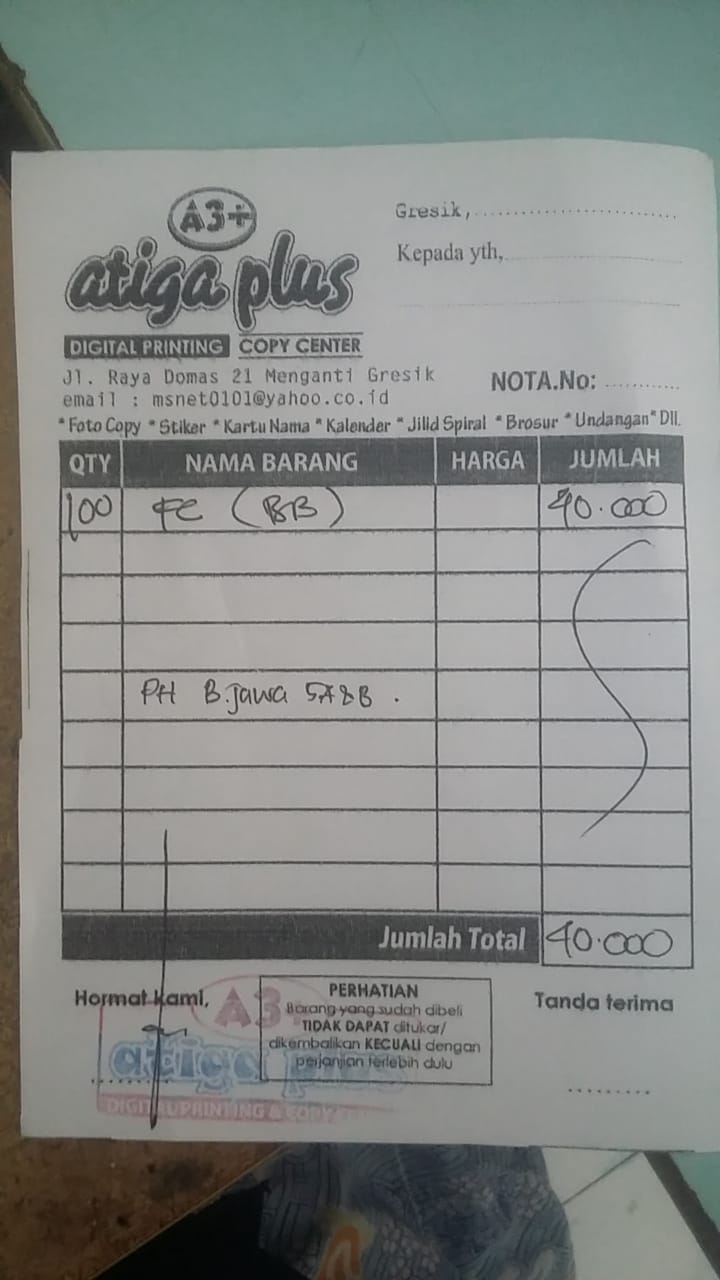 A3+
atiga plus
DIGITAL PRINTING COPY CENTER
Jl. Raya Domas 21 Menganti Gresik
email : msnet0101@yahoo.co.id
Gresik,..............................
Kepada yth,..............................
NOTA.No: ............
* Foto Copy * Stiker * Kartu Nama * Kalender * Jilid Spiral * Brosur * Undangan * Dll.
QTY NAMA BARANG HARGA JUMLAH
100 FC (BB) 40.000
PH B.Jawa 5A&B.
Jumlah Total 40.000
Hormat Kami,
A3+
atiga plus
DIGITAL PRINTING & COPY
PERHATIAN
Barang yang sudah dibeli
TIDAK DAPAT ditukar/
dikembalikan KECUALI dengan
perjanjian terlebih dulu
Tanda terima